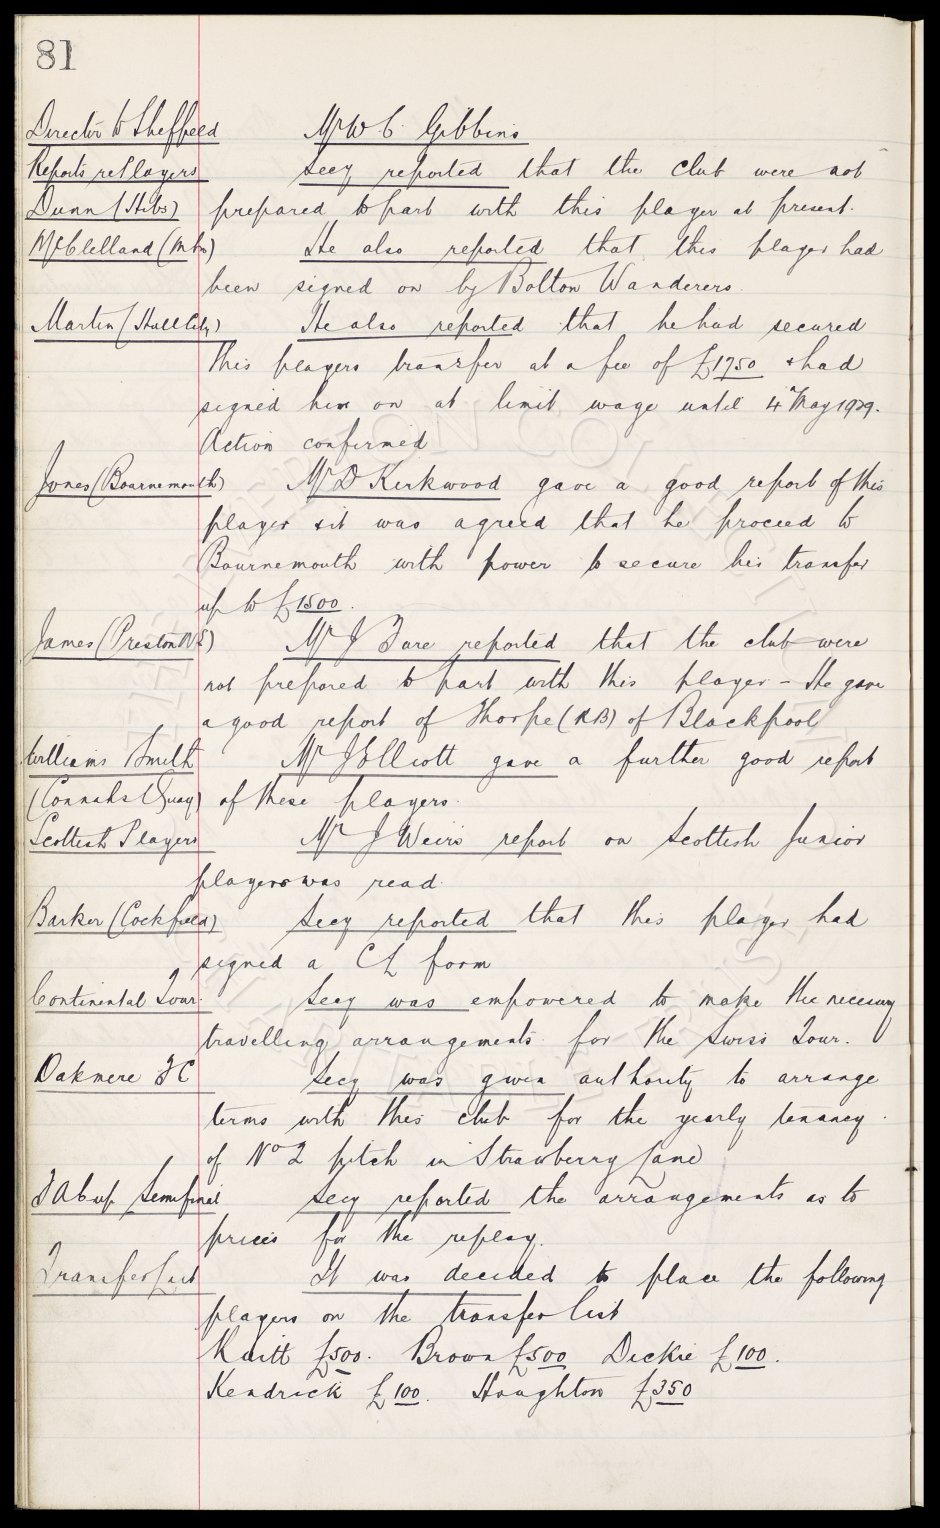 81
Director to Sheffield Mr W C Gibbins
Reports re Players Secy reported that the club were not
Dunn (Hibs) prepared to part with this player at present.
McClelland (Mbro) He also reported that this player had
been signed on by Bolton Wanderers.
Martin (Hull City) He also reported that he had secured
this players transfer at a fee of £1750 & had
signed him on at limit wage until 4th May 1929.
Action confirmed
Jones (Bournemouth) Mr D Kirkwood gave a good report of this
player & it was agreed that he proceed to
Bournemouth with power to secure his transfer
up to £1500.
James (Preston N E) Mr J Fare reported that the club were
not prepared to part with this player - He gave
a good report of Thorpe (RB) of Blackpool
Williams Smith Mr J Elliott gave a further good report
(Connahs Quay) of these players.
Scottish Players Mr J Weirs report on Scottish Junior
players was read.
Barker (Cockfield) Secy reported that this player had
signed a CL form
Continental Tour. Secy was empowered to make the necessary
travelling arrangements for the Swiss Tour.
Oakmere FC Secy was given authority to arrange
terms with this club for the yearly tenancy
of No 2 pitch in Strawberry Lane
F A Cup Semifinal Secy reported the arrangements as to
prices for the replay.
Transfer List It was decided to place the following
players on the transfer list
Kuitt £500. Brown £500 Dickie £100.
Kendrick £100. Houghton £350